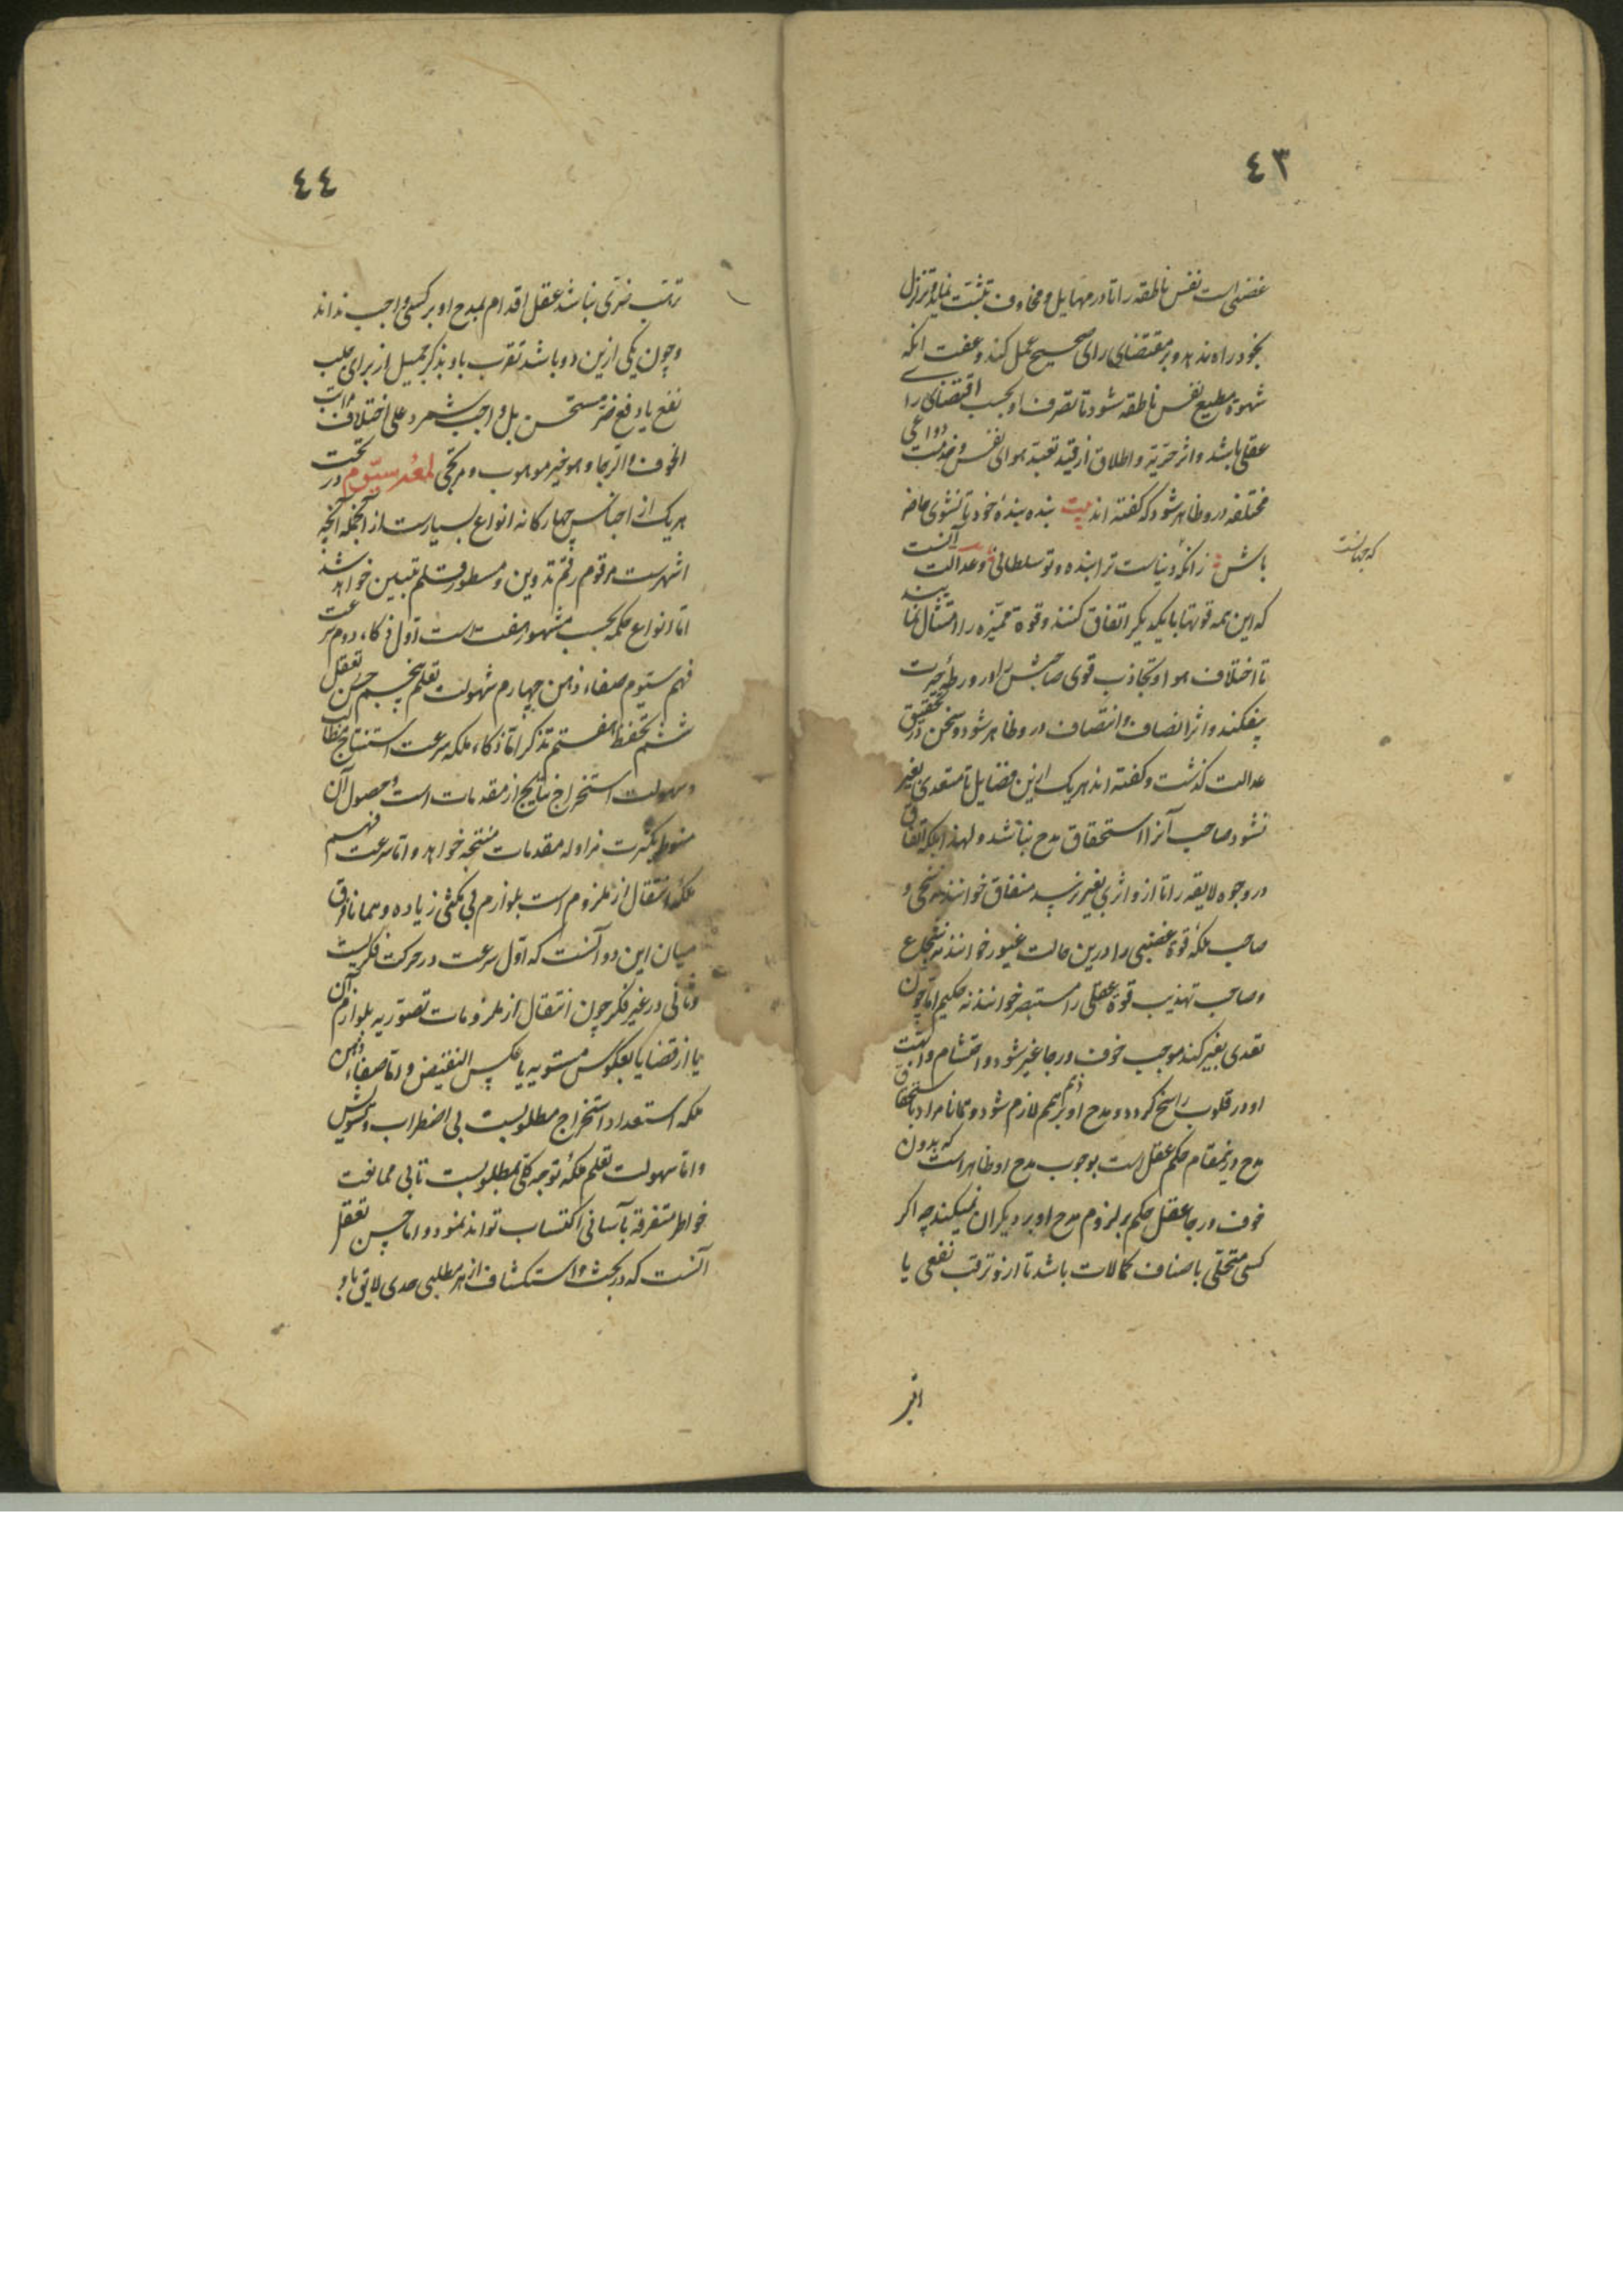 ٤٣
غضبی است نفس ناطقه را تا در مهایل و مخاوف تثبت نماید و تزلزل
بخود راه ندهد و بر مقتضای رای صحیح عمل کند و عفت آنکه
شهوة مطیع نفس ناطقه شود تا تصرف او بحسب اقتضای رای
عقلی باشد و اثر حریّة و اطلاق از قید تعبد هوای نفس و خدمت دواعی
مختلفه درو ظاهر شود که گفته اند بیت بنده بندهٔ خود تا نشوی حاضر
باش زانکه دنیاست ترا بنده و تو سلطانی و عدالت آنست
که این همه قوتها با یکدیگر اتفاق کنند و قوة ممیّزه را امتثال نمایند
تا اختلاف هوا و تجاذب قوی صاحبش را در ورطهٔ حیرت
نیفکند و اثر انصاف و انتصاف درو ظاهر شود و سخن در تحقیق
عدالت گذشت و گفته اند هر یک ازین فضایل تا متعدی بغیر
نشود صاحب آنرا استحقاق مدح نباشد و لهذا ملکهٔ انفاق
در وجوه لایقه را تا ازو اثری بغیر نرسد منفاق خوانند نه سخی و
صاحب ملکهٔ قوة غضبی را درین حالت غیور خوانند نه شجاع
و صاحب تهذیب قوة عقلی را مستبصر خوانند نه حکیم اما چون
تعدی بغیر کند موجب خوف و رجا غیر شود و احتشام و ابهت
او در قلوب راسخ گردد و مدح او بر ذمم لازم شود و همانا مراد باستحقاق
مدح درینمقام حکم عقل است بوجوب مدح او ظاهر است که بدون
خوف و رجا عقل حکم بر لزوم مدح او بر دیگران نمیکند چه اگر
کسی متحلی باصناف کمالات باشد تا ازو ترقب نفعی یا
که جدانست
٤٤
ترقب ضرری نباشد عقل اقدام بمدح او بر کسی واجب نداند
و چون یکی ازین دو باشد تقرب باو بذکر جمیل از برای جلب
نفع یا دفع ضرر مستحسن بل واجب شمرد علی اختلاف مراتب
الخوف و الرجا و هو خیر موهوب و مرتجی لمعه سیّوم در تحت
هر یک از اجناس چهارگانه انواع بسیارست از آنجمله آنچه
اشهرست مرقوم رقم تدوین و مسطور قلم تبیین خواهد شد
اما انواع حکمة بحسب مشهور هفت است اول ذکاء دوم سرعت
فهم سیّوم صفاء ذهن چهارم سهولت تعلم پنجم حسن تعقل
ششم تحفظ هفتم تذکر اما ذکاء ملکه سرعت استنتاج مطالب
و سهولت استخراج نتایج از مقدمات است و حصول آن
منوط بکثرت مزاوله مقدمات منتجه خواهد و اما سرعت فهم
ملکهٔ انتقال از ملزوم است بلوازم بی مکثی زیاده و همانا فرق
میان این دو آنست که اول سرعت در حرکت فکریست
و ثانی در غیر فکر چون انتقال از ملزومات تصوّریه بلوازم آن
یا از قضایا بعکوس مستویه یا عکس النقیض و اما صفاء ذهن
ملکه استعداد استخراج مطلوبست بی اضطراب و تشویش
و اما سهولت تعلم ملکهٔ توجه کلی بمطلوبست تا بی ممانعت
خواطر متفرقه بآسانی اکتساب تواند نمود و اما حسن تعقل
آنست که در بحث و استکشاف از هر مطلبی حدی لایق باو